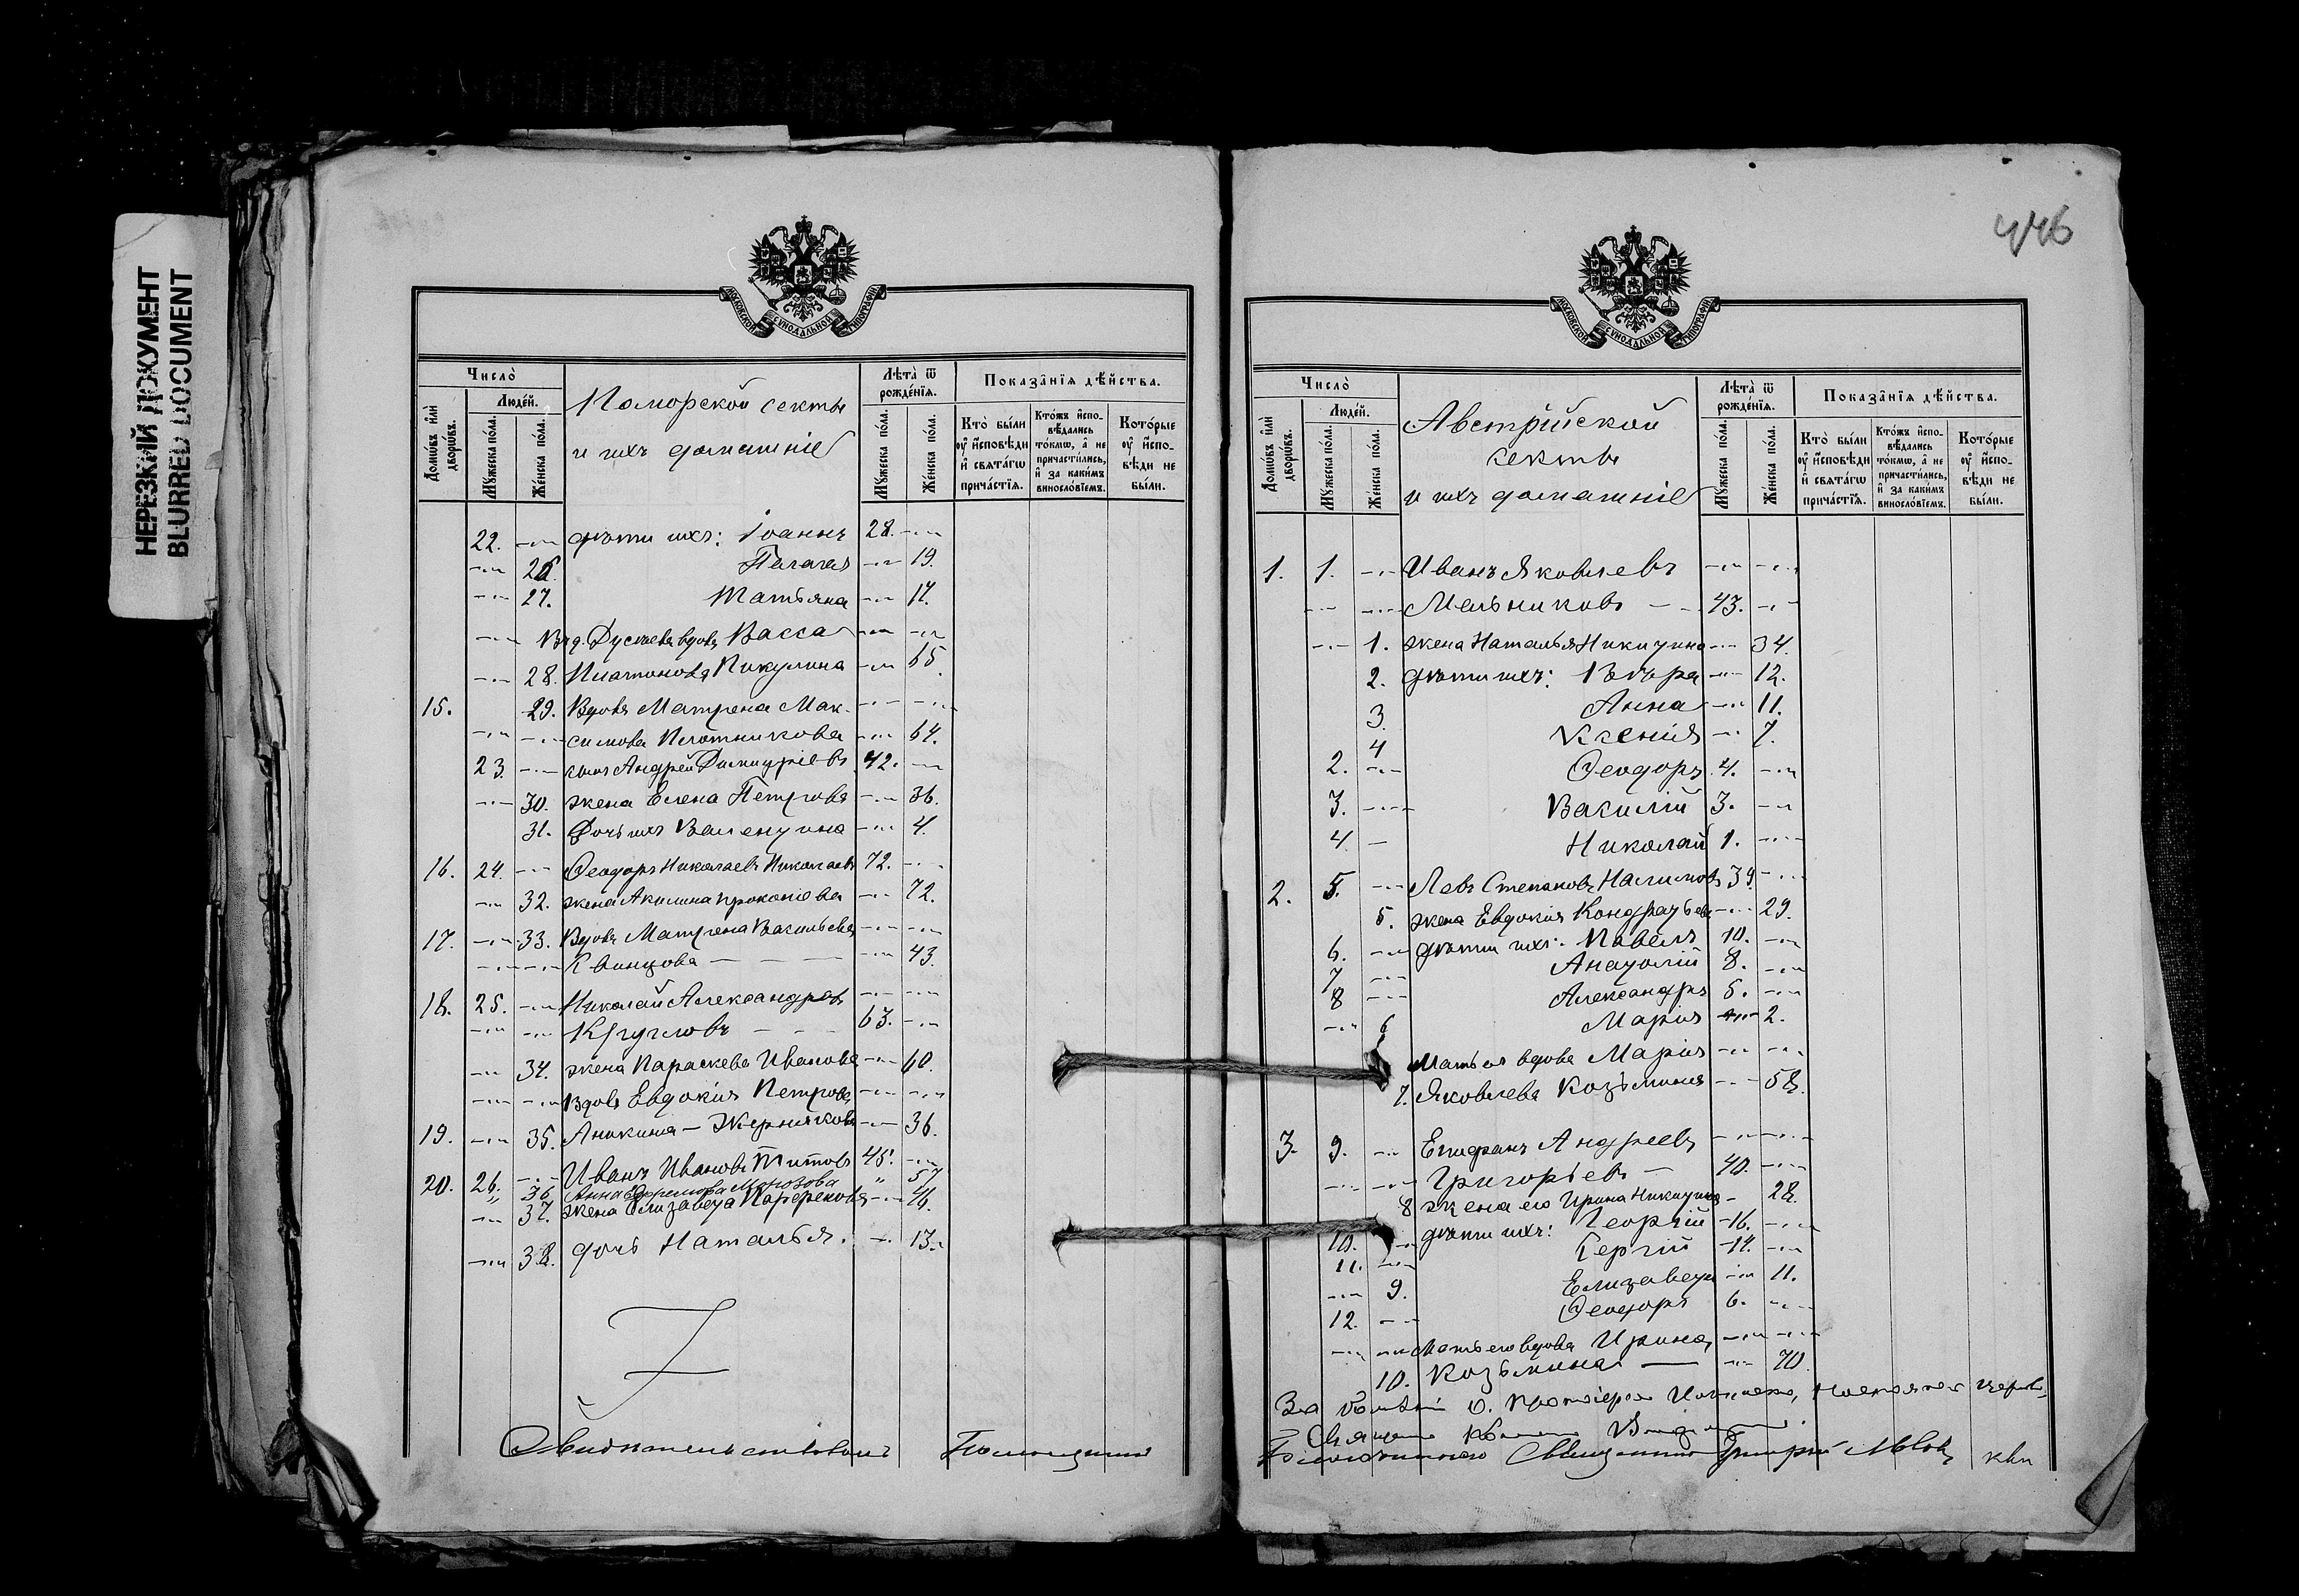 НЕРЕЗКИЙ ДОКУМЕНТ
BLURRED DOCUMENT
МОСКОВСКОЙ СУНОДАЛЬНОЙ ТИПОГРАФІИ
Число̀
Люде́й.
Домѡ́въ и҆лѝ дворѡ́въ.
Мꙋ́жеска по́ла.
Же́нска по́ла.
Поморской секты
и ихъ домашніе
Лѣта̀ ѿ рожде́нїѧ.
Мꙋ́жеска по́ла.
Же́нска по́ла.
Показа̑нїѧ дѣ́йства.
Кто̀ бы́ли ᲂу҆ и҆сповѣ́ди и҆ свѧта́гѡ прича́стїѧ.
Кто́жъ и҆сповѣ́дались то́кмѡ, а҆ не причасти́лись, и҆ за каки́мъ винослові́емъ.
Кото́рые ᲂу҆ и҆сповѣ́ди не бы́ли.
22. дѣти ихъ: Іоаннъ 28.
26. Пелагея 19.
27. Татьяна 17.
Вдова Васса
28. Платонова Никулина 65.
15. 29. Вдова Матрена Мак-
симова Плотникова 64.
23. сынъ Андрей Димитріевъ 42.
30. жена Елена Петрова 36.
31. Дочь ихъ Валентина 4.
16. 24. Ѳеодоръ Николаевъ Николаевъ 72.
32. жена Акилина Прокопіева 72.
17. 33. Вдова Матрена Васильева
Квинцова 43.
18. 25. Николай Александровъ
Кругловъ 63.
34. жена Параскева Иванова 60.
Вдова Евдокія Петрова
19. 35. Аникина - Жернякова 36.
20. 26. Иванъ Ивановъ Титовъ 45.
" 36. Анна Ефремова Морозова " 57
37. жена Елизавета 46.
38. дочь Наталья. 13.
Свидѣтельствовалъ Помощникъ
446
МОСКОВСКОЙ СУНОДАЛЬНОЙ ТИПОГРАФІИ
Число̀
Люде́й.
Домѡ́въ и҆лѝ дворѡ́въ.
Мꙋ́жеска по́ла.
Же́нска по́ла.
Австрійской
секты
и ихъ домашніе
Лѣта̀ ѿ рожде́нїѧ.
Мꙋ́жеска по́ла.
Же́нска по́ла.
Показа̑нїѧ дѣ́йства.
Кто̀ бы́ли ᲂу҆ и҆сповѣ́ди и҆ свѧта́гѡ прича́стїѧ.
Кто́жъ и҆сповѣ́дались то́кмѡ, а҆ не причасти́лись, и҆ за каки́мъ винослові́емъ.
Кото́рые ᲂу҆ и҆сповѣ́ди не бы́ли.
1. 1. Иванъ Яковлевъ
Мельниковъ 43.
1. жена Наталья Никитина 34.
2. дѣти ихъ: Вѣра 12.
3. Анна 11.
4 Ксенія 7.
2. Ѳеодоръ 4.
3. Василій 3.
4. Николай 1.
2. 5. Левъ Степановъ Налимовъ 39.
5. жена Евдокія Кондратьева 29.
6. дѣти ихъ: Павелъ 10.
7 Анатолій 8.
8 Александръ 5.
6 Марія 2.
Мать ея вдова Марія
7. Яковлева Козьмина 58.
3. 9. Епифанъ Андреевъ
Григорьевъ 40.
8 жена его Ирина Никитина 28.
10. дѣти ихъ: Георгій 16.
11. Сергій 14.
9. Елизавета 11.
12. Ѳеодоръ 6.
Мать его вдова Ирина
10. Козьмина 70.
За О. Протоіерея
Благочиннаго Священникъ Димитрій